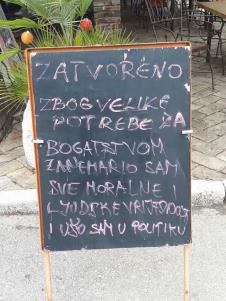 ZATVORENO
ZBOG VELIKE
POTREBE ZA
BOGATSTVOM
ZANEMARIO SAM
SVE MORALNE I
LJUDSKE VRIJEDNOSTI
I UŠO SAM U POLITIKU